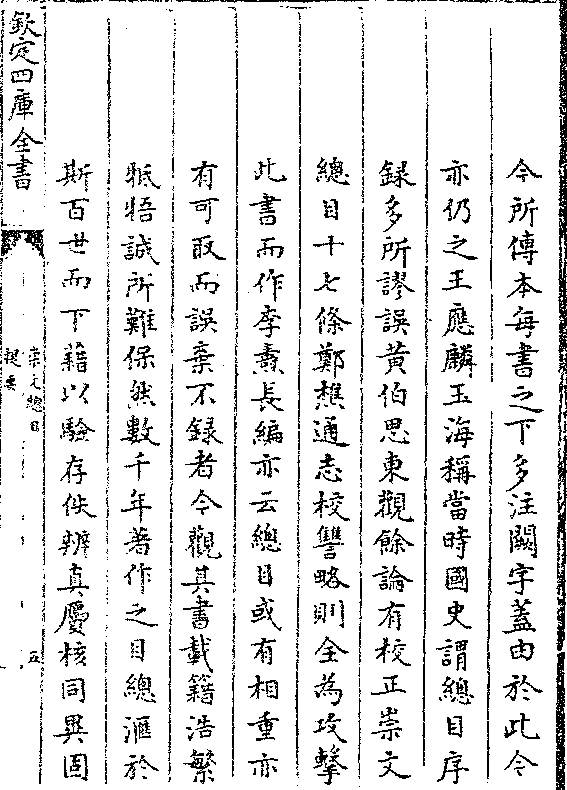 今所傳本每書之下多注闕字蓋由於此今
亦仍之王應麟玉海稱當時國史謂總目序
録多所謬誤黄伯思東觀餘論有校正崇文
總目十七條鄭樵通志校讐略則全為攻擊
此書而作李燾長編亦云總目或有相重亦
有可取而誤棄不録者今觀其書載籍浩繁
牴牾誠所難保然數千年著作之目總滙於
斯百世而下藉以驗存佚辨真贗核同異固
欽定四庫全書
崇文總目
提要
五